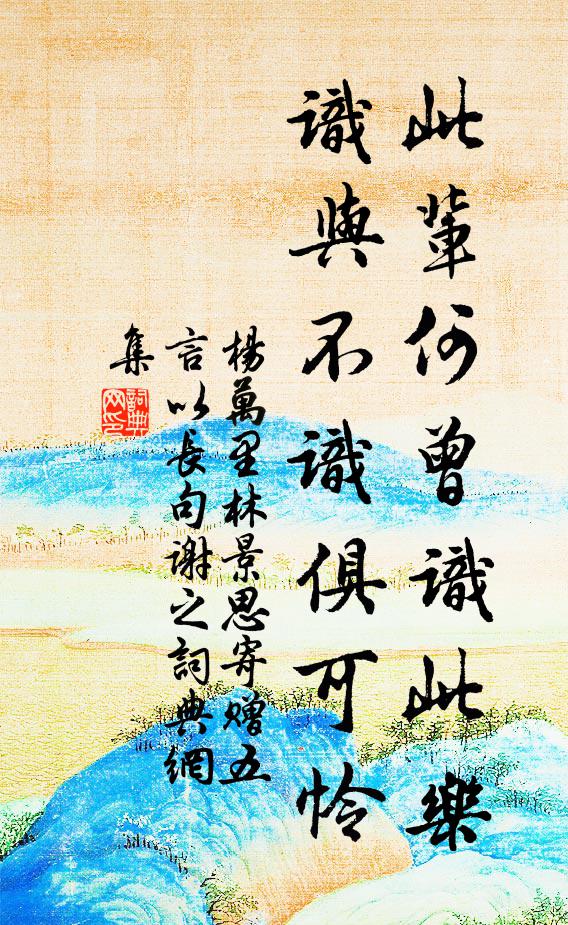 此輩何曾識此樂
識與不識俱可憐
楊萬里林景思寄贈五
言以長句謝之詞典網
集
詞典
网印